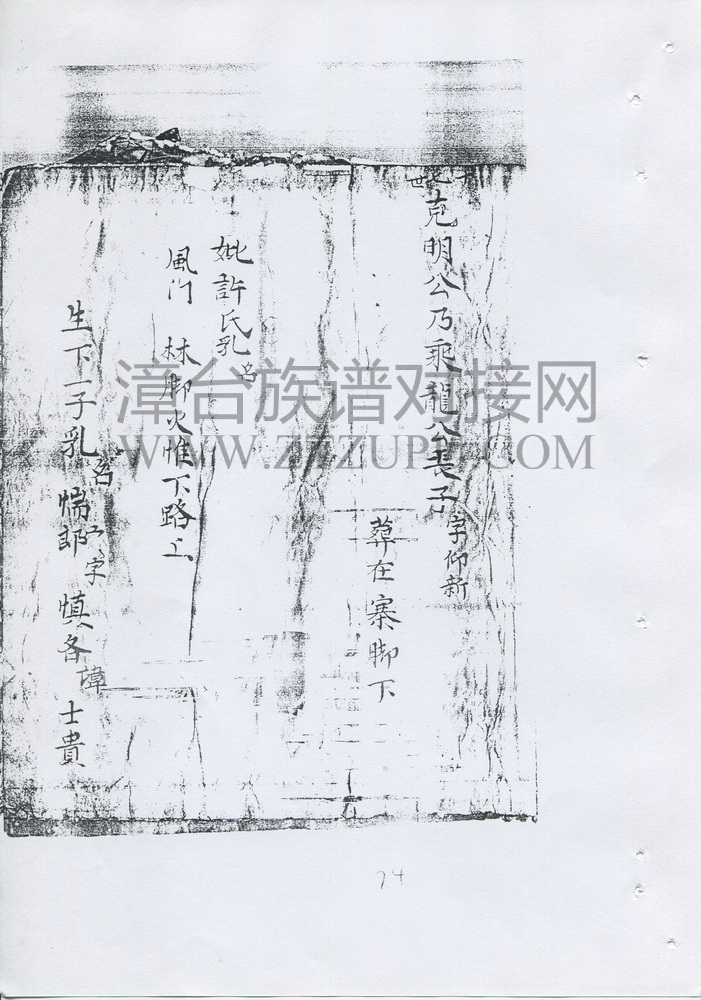 世
克明公乃乘龍公長子
字仰新
葬在寨脚下
妣許氏乳名
風門 林脚火惟下路上
生下一子乳名惕郎字慎各諱士貴
漳台族谱对接网
WWW.ZTZUPU.COM
74